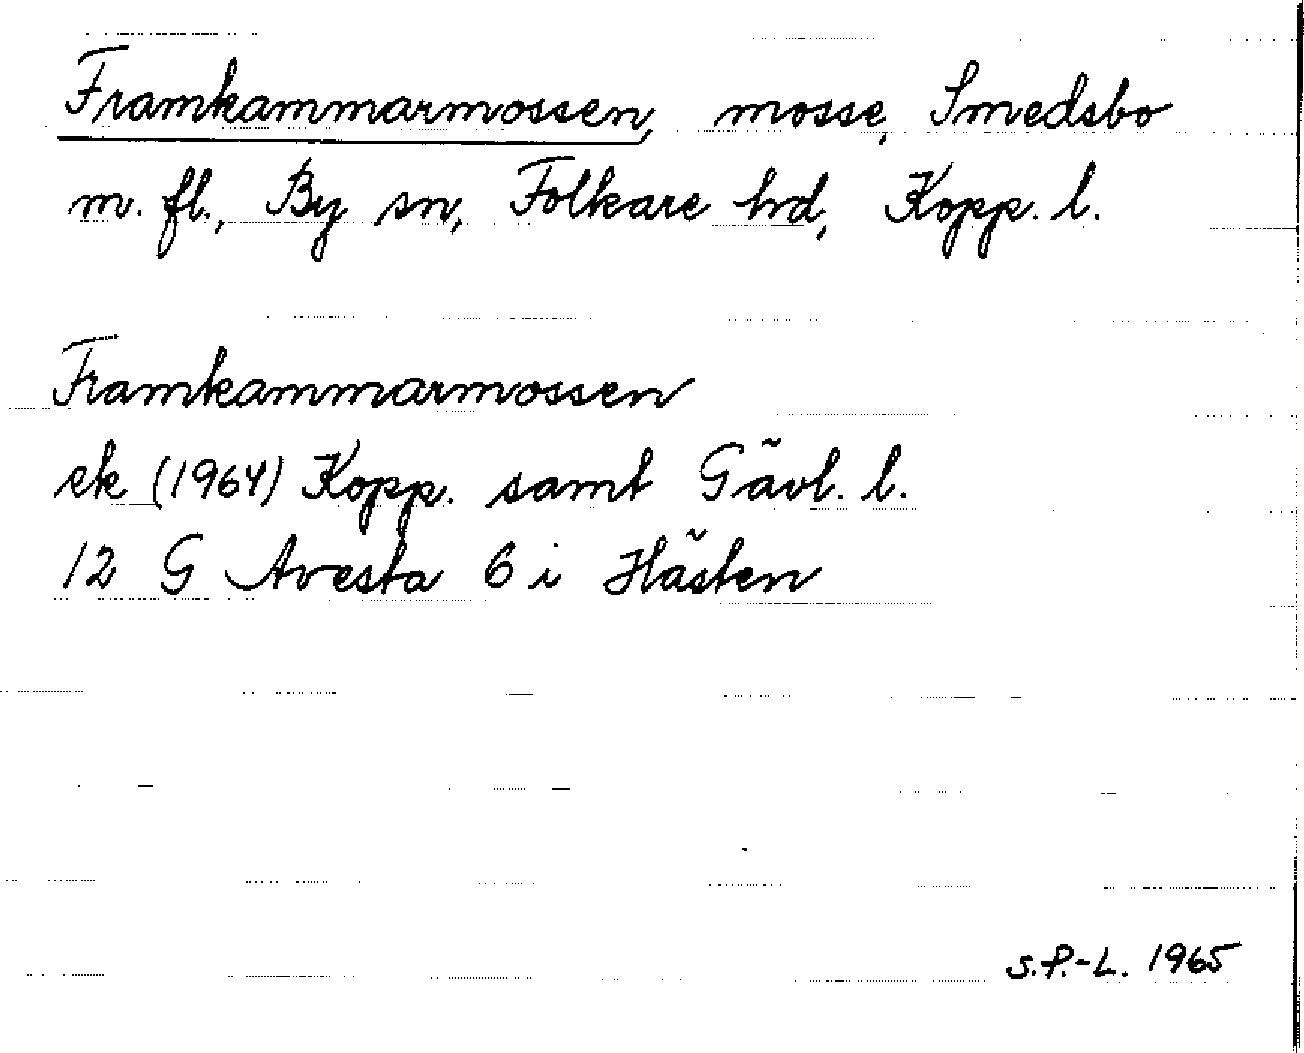 Framkammarmossen, mosse, Smedsbo
m. fl., By sn, Folkare hd, Kopp. l.
Framkammarmossen
ek (1964) Kopp. samt Gävl. l.
12 G Avesta 6 i Hästen
S.P.-L. 1965